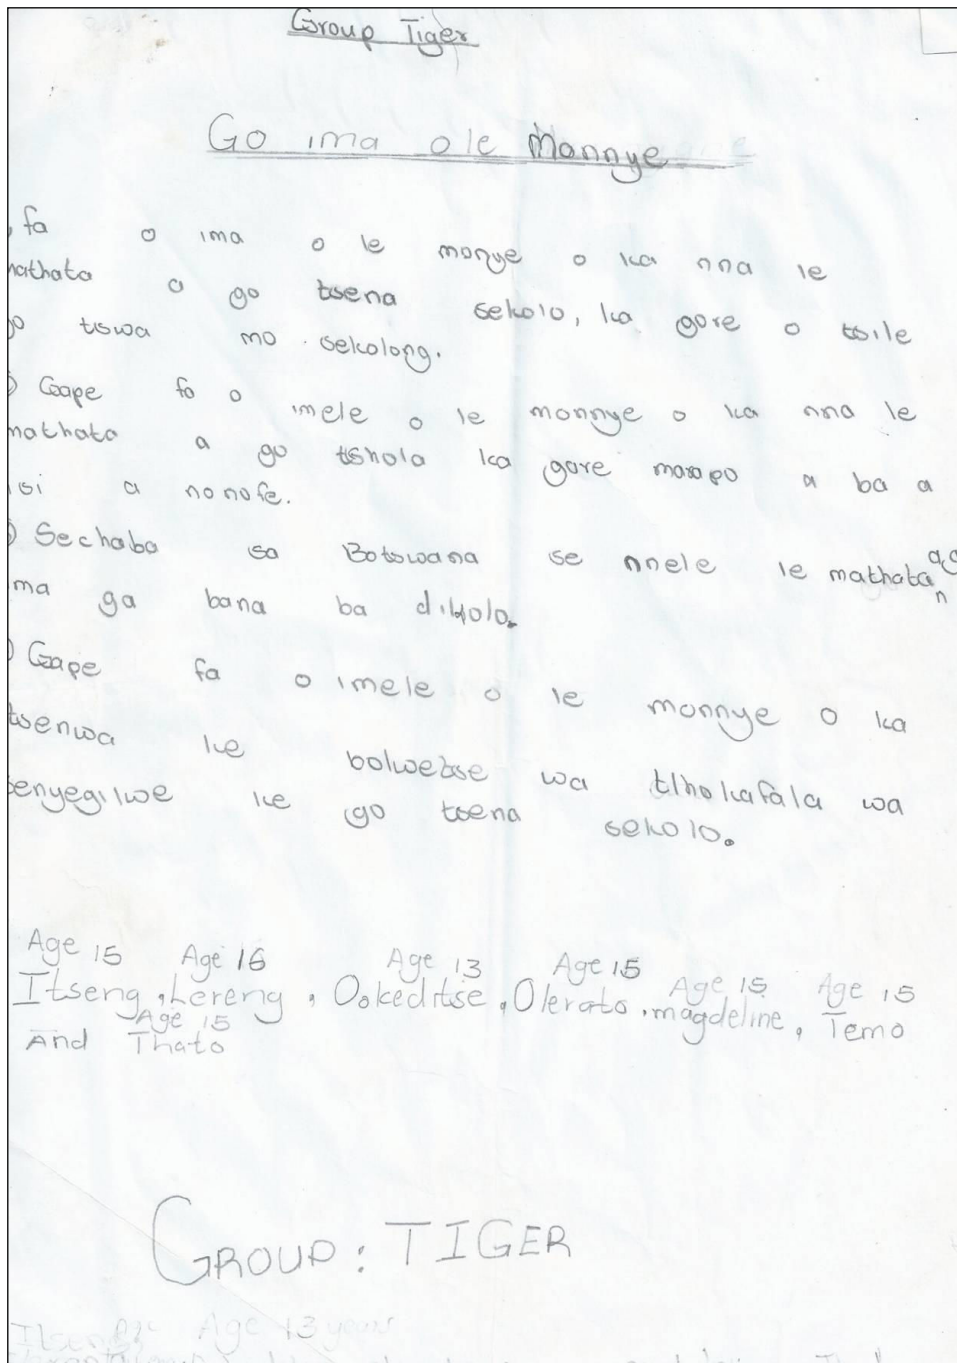 Group Tiger
Go ima o le Monnye
fa o ima o le monye o ka nna le
mathata a go tsena sekolo, ka gore o tsile
go tswa mo sekolong.
Gape fa o imele o le monnye o ka nna le
mathata a go tshola ka gore marapo a ba a
isi a nonofe.
Sechaba sa Botswana se nnele le mathata
ima ga bana ba dikolo.
Gape fa o imele o le monnye o ka
tsenwa ke bolwetse wa tlhokafala wa
senyegilwe ke go tsena sekolo.
Age 15 Age 16 Age 13 Age 15 Age 15 Age 15
Itseng, Lereng, Ookeditse, Olerato, magdeline, Temo
Age 15
And Thato
GROUP: TIGER
Itseng Age 13 years